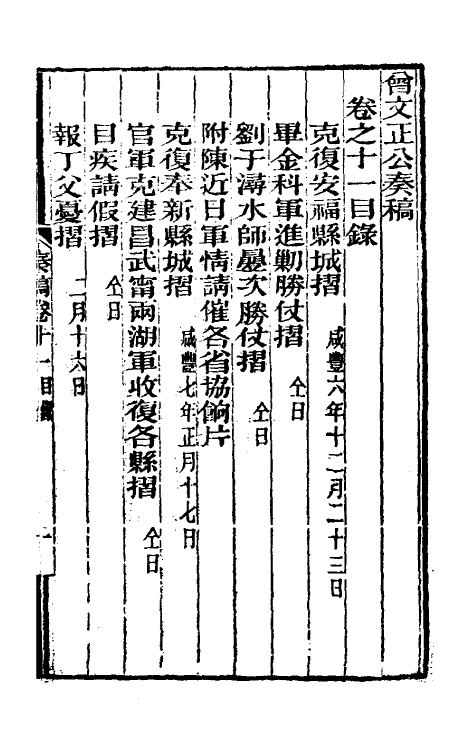 曾文正公奏稿
卷之十一目錄
克復安福縣城摺 咸豐六年十二月二十三日
畢金科軍進勦勝仗摺 仝日
劉于潯水師屢次勝仗摺 仝日
附陳近日軍情請催各省協餉片
克復奉新縣城摺 咸豐七年正月十七日
官軍克建昌武甯兩湖軍收復各縣摺 仝日
目疾請假摺 仝日
報丁父憂摺 二月十六日
奏稿卷十一目錄 一